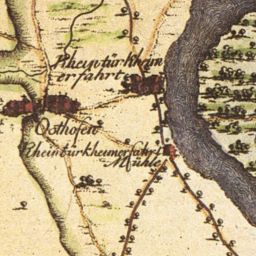 Rheintürkheim
erfahrt
Osthofen
Rheinturkheimerfahrt
Mühle